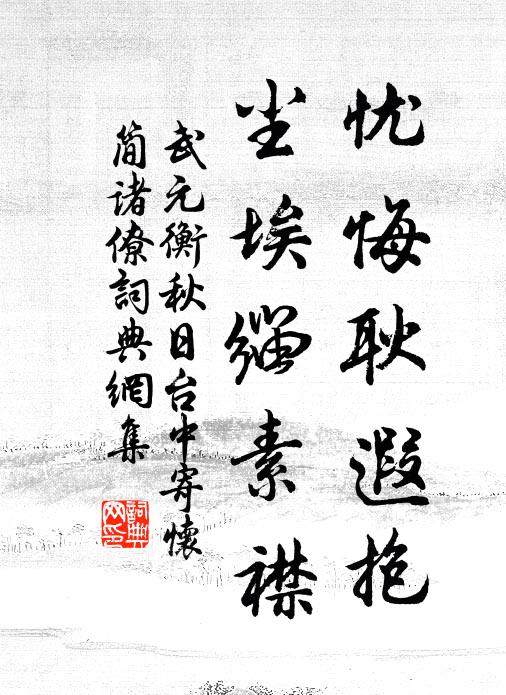 忧悔耿遐抱
尘埃缁素襟
武元衡秋日台中寄怀
简诸僚詞典網集
詞典
网印